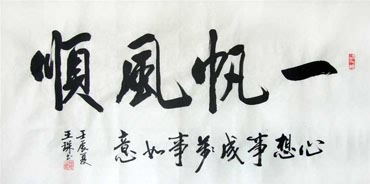 一帆風順
心想事成萬事如意
壬辰夏
王珠书